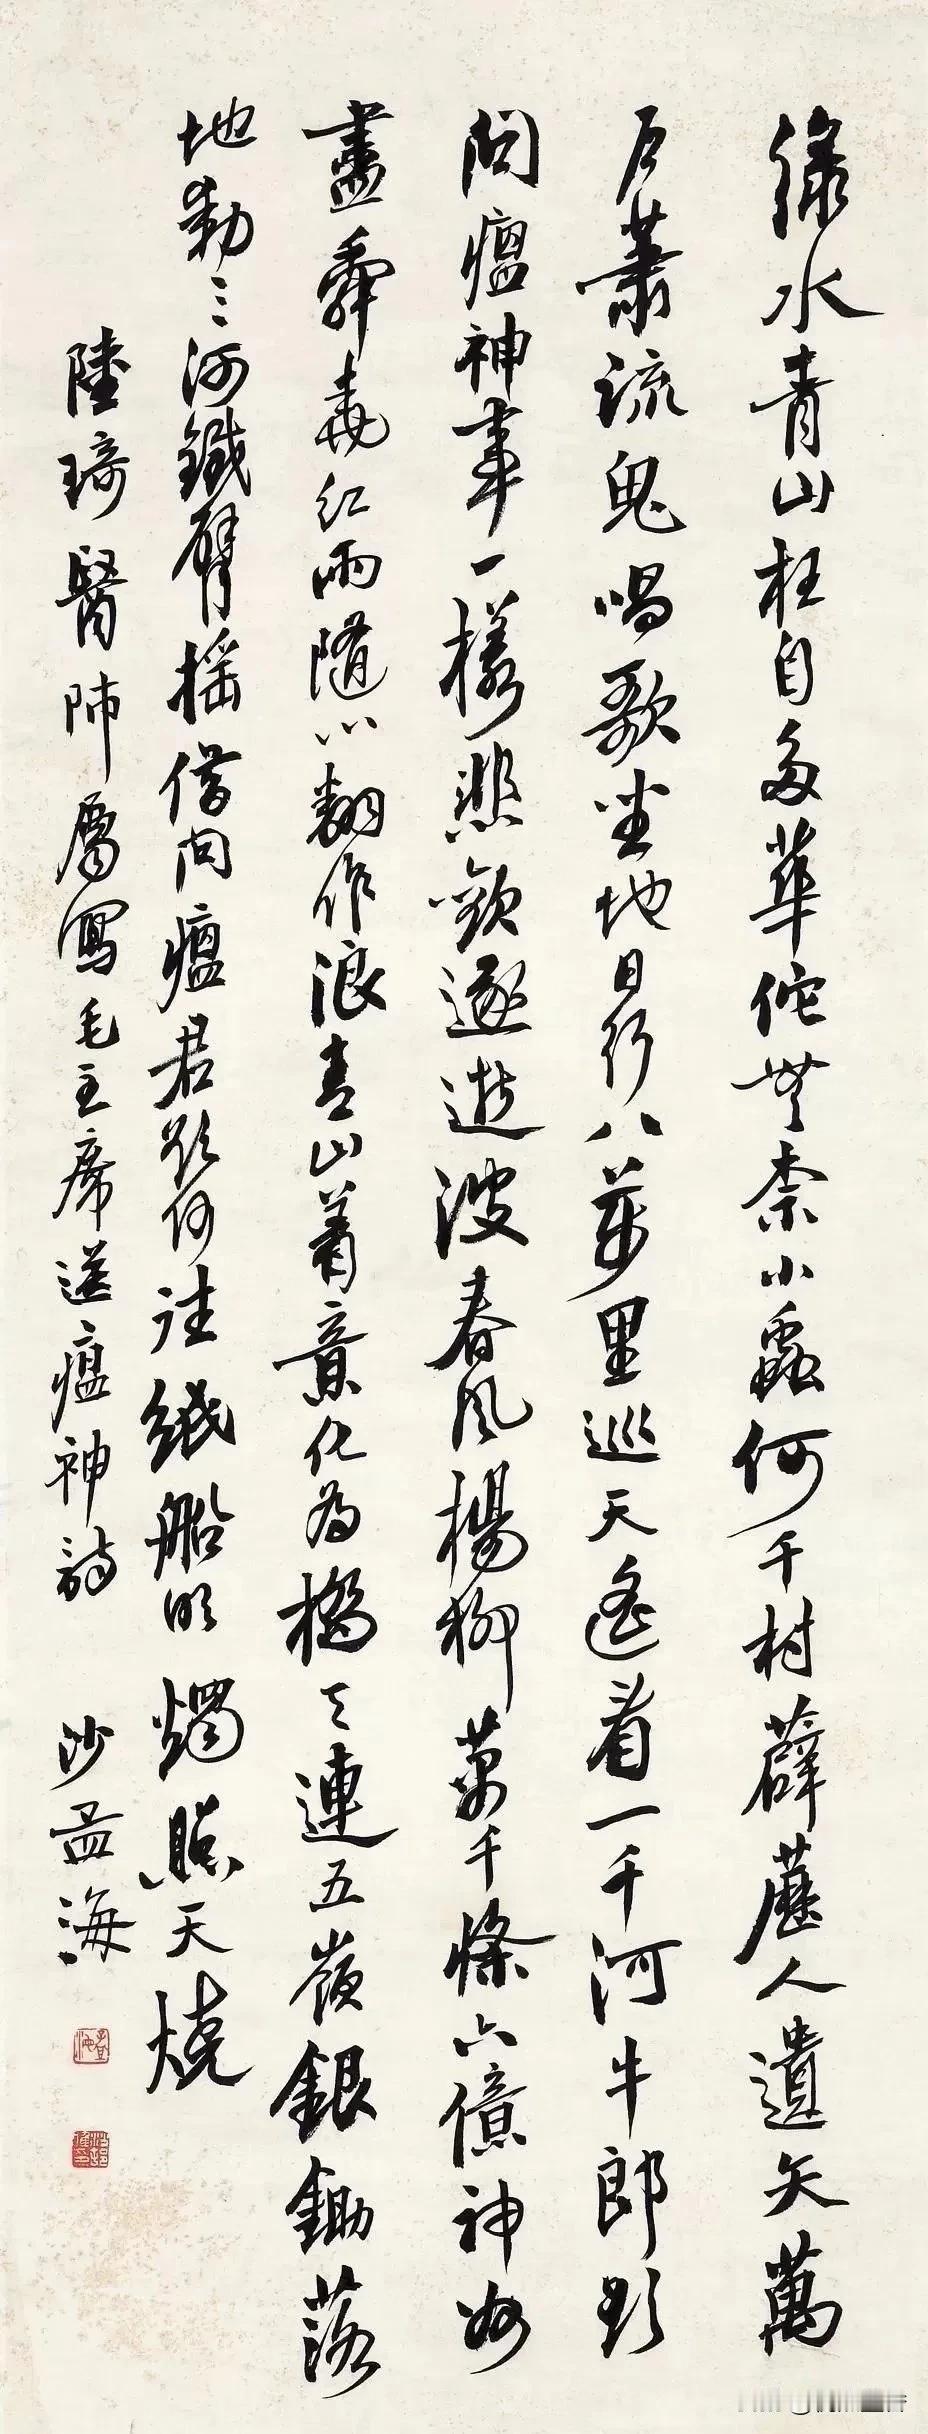 綠水青山枉自多華佗無柰小蟲何千村薜藶人遺矢萬
户蕭疏鬼唱歌坐地日行八萬里巡天遙看一千河牛郎欲
問瘟神事一樣悲歡逐逝波春風楊柳萬千條六億神州
盡舜堯紅雨隨心翻作浪青山着意化為橋天連五嶺銀鋤落
地動三河鐵臂搖借問瘟君欲何往紙船明燭照天燒
陸琦醫師屬寫毛主席送瘟神詩 沙孟海
孟海